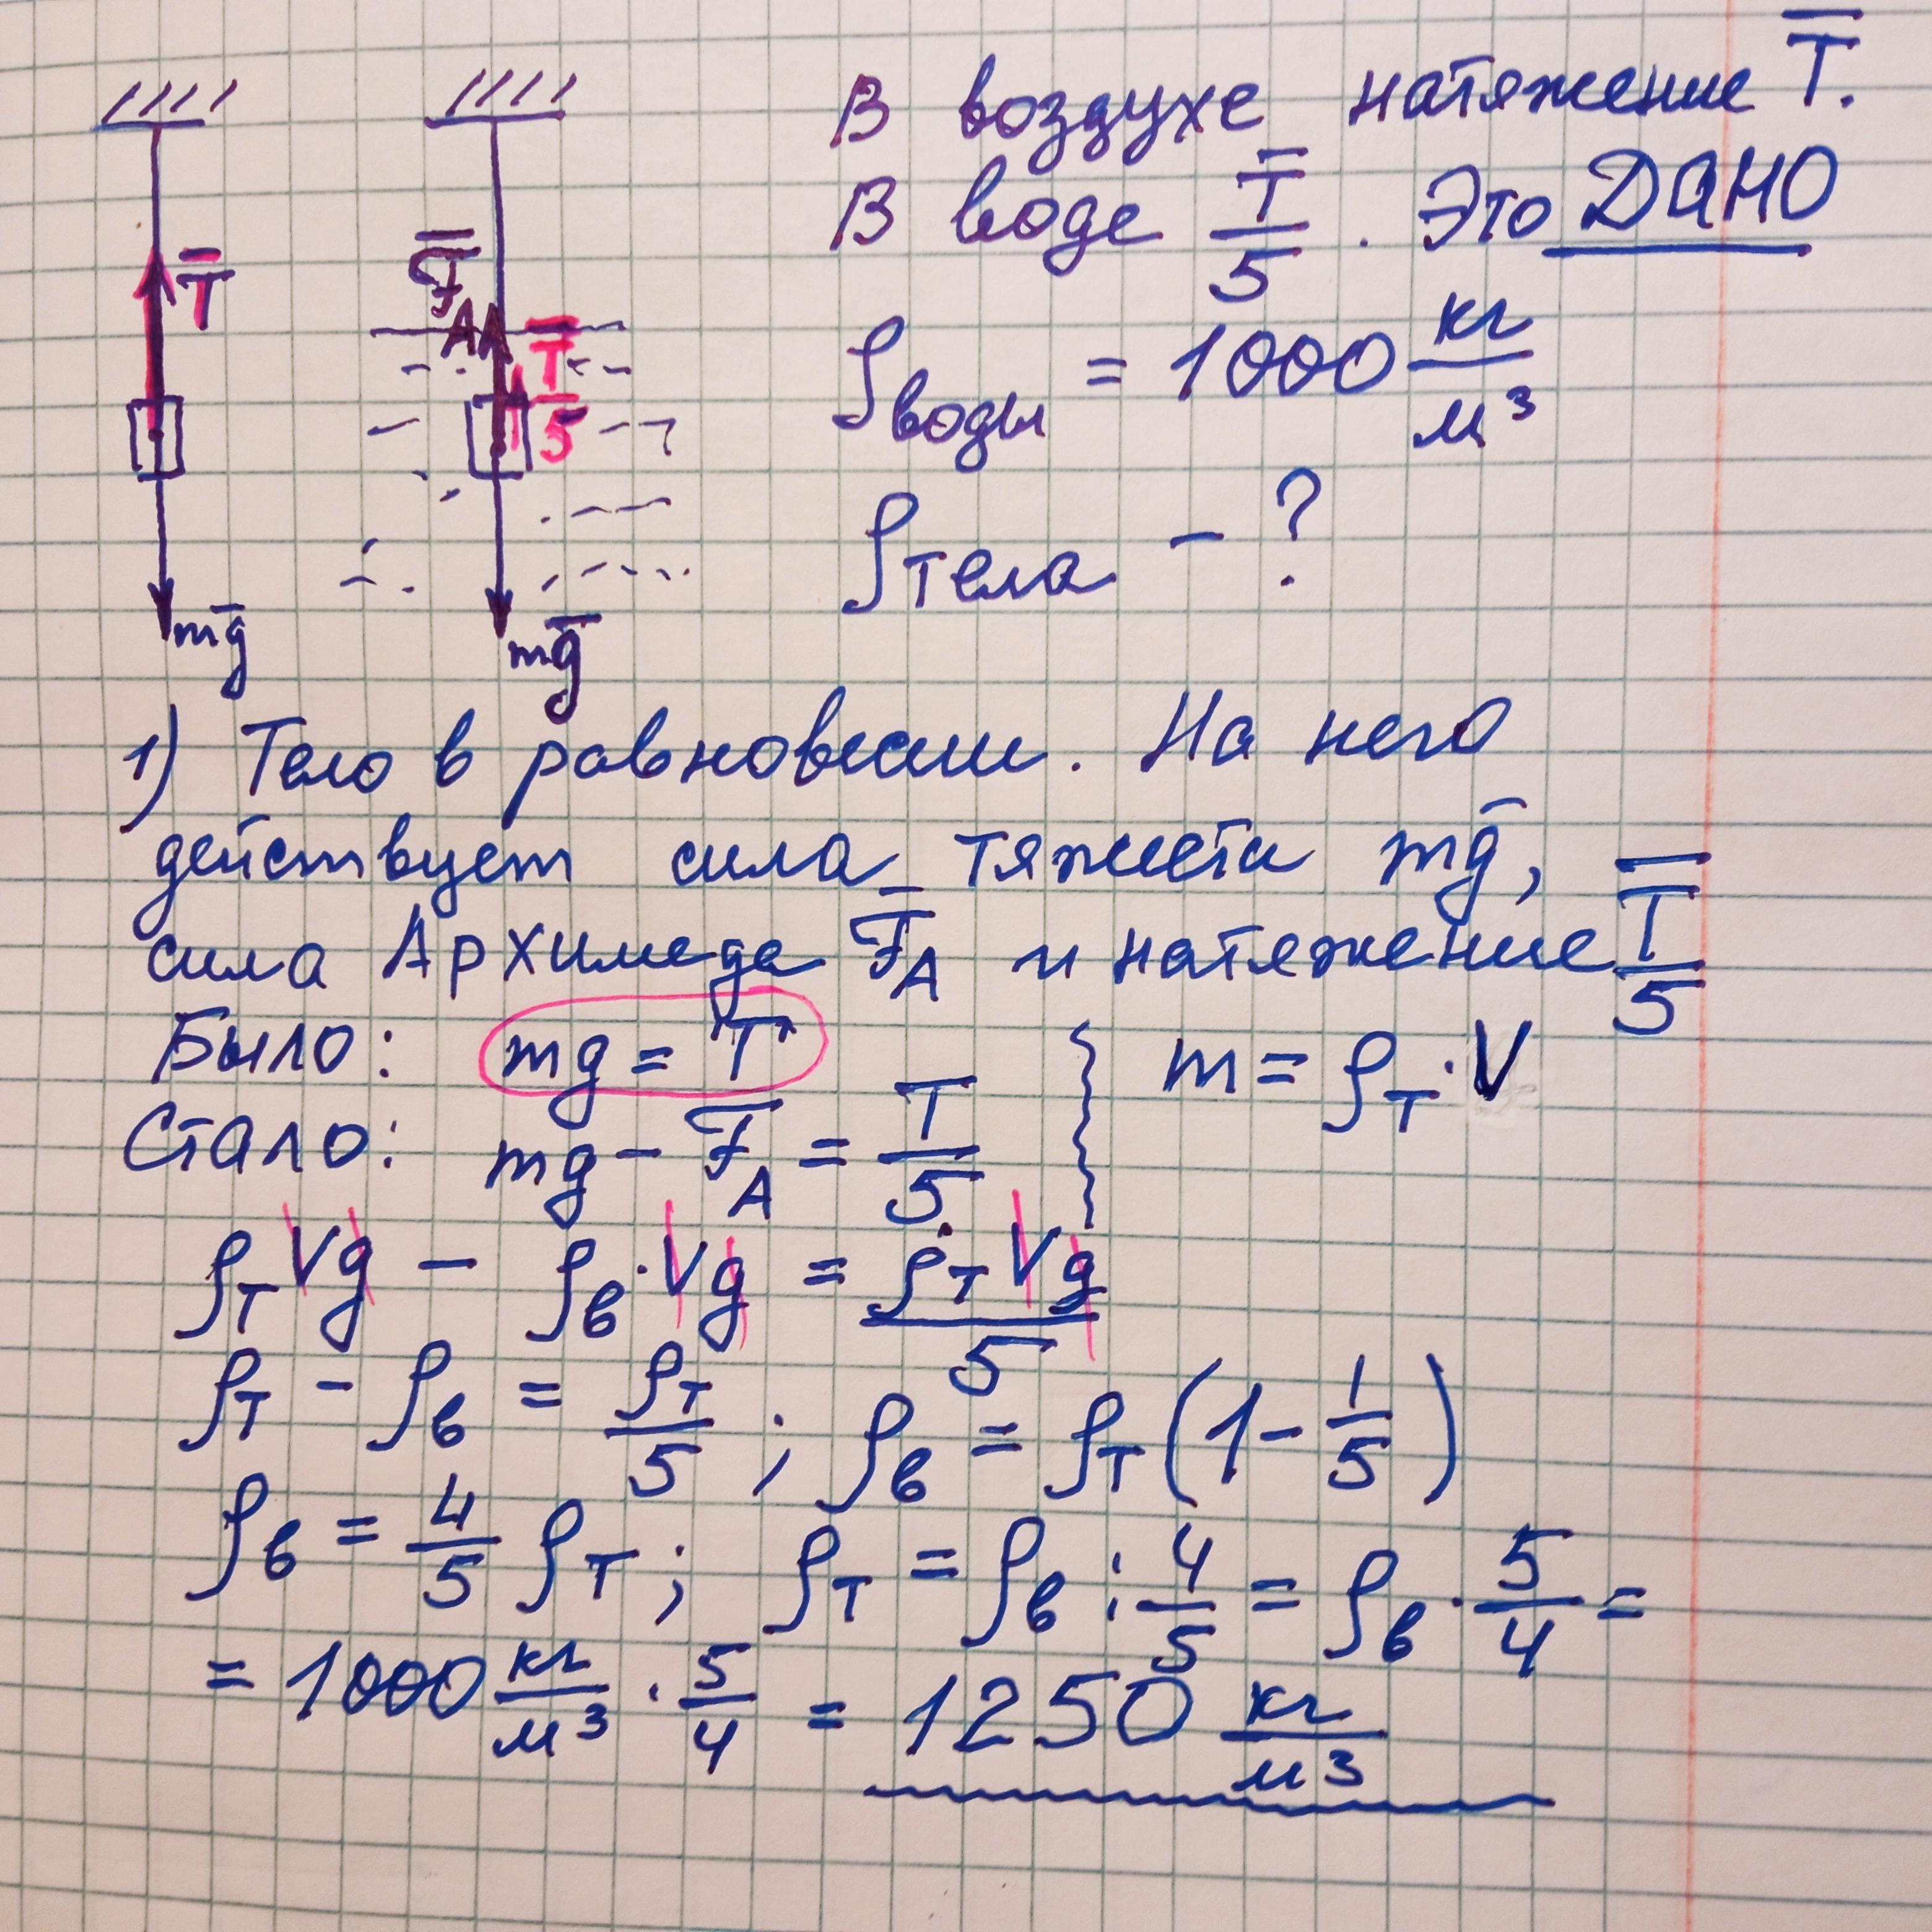 В воздухе натяжение T̅.
В воде T̅/5. Это ДАНО
ρводы = 1000 кг/м³
ρтела - ?
T̅
mg̅
F̅A
T̅/5
mg̅
1) Тело в равновесии. На него
действует сила тяжести mg̅,
сила Архимеда F̅A и натяжение T̅/5
Было: mg = "T" } m = ρT · V
Стало: mg - FA = T/5
ρTVg - ρв · Vg = ρTVg/5
ρT - ρв = ρT/5 ; ρв = ρT(1 - 1/5)
ρв = 4/5 ρT ; ρT = ρв : 4/5 = ρв · 5/4 =
= 1000 кг/м³ · 5/4 = 1250 кг/м³